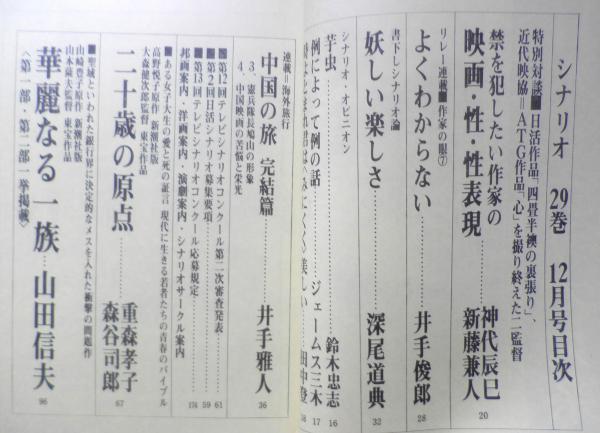 シナリオ 29巻 12月号目次
特別対談■日活作品「四畳半襖の裏張り」、
近代映協=ATG作品「心」を撮り終えた二監督
禁を犯したい作家の
映画・性・性表現
神代辰巳
新藤兼人
20
リレー連載■作家の眼⑦
よくわからない
井手俊郎
28
書下しシナリオ論
妖しい楽しさ
深尾道典
32
シナリオ・オピニオン
芋虫
鈴木忠志
16
例によって例の話
ジェームス三木
17
美しい
田中登
連載=海外旅行
中国の旅 完結篇
3、憲兵隊長鳩山の形象
4、中国映画の苦悩と栄光
井手雅人
36
■第12回テレビシナリオコンクール第二次審査発表
61
■第2回日活シナリオ募集要項
59
■第13回テレビシナリオコンクール応募規定
174
邦画案内・洋画案内・演劇案内・シナリオサークル案内
■ある女子大生の愛と死の証言 現代に生きる若者たちの青春のバイブル
高野悦子原作 新潮社版
大森健次郎監督 東宝作品
二十歳の原点
重森孝子
森谷司郎
67
■聖域といわれた銀行界に決定的なメスを入れた衝撃の問題作
山崎豊子原作 新潮社版
山本薩夫監督 東宝作品
華麗なる一族
山田信夫
96
〈第一部・第二部一挙掲載〉